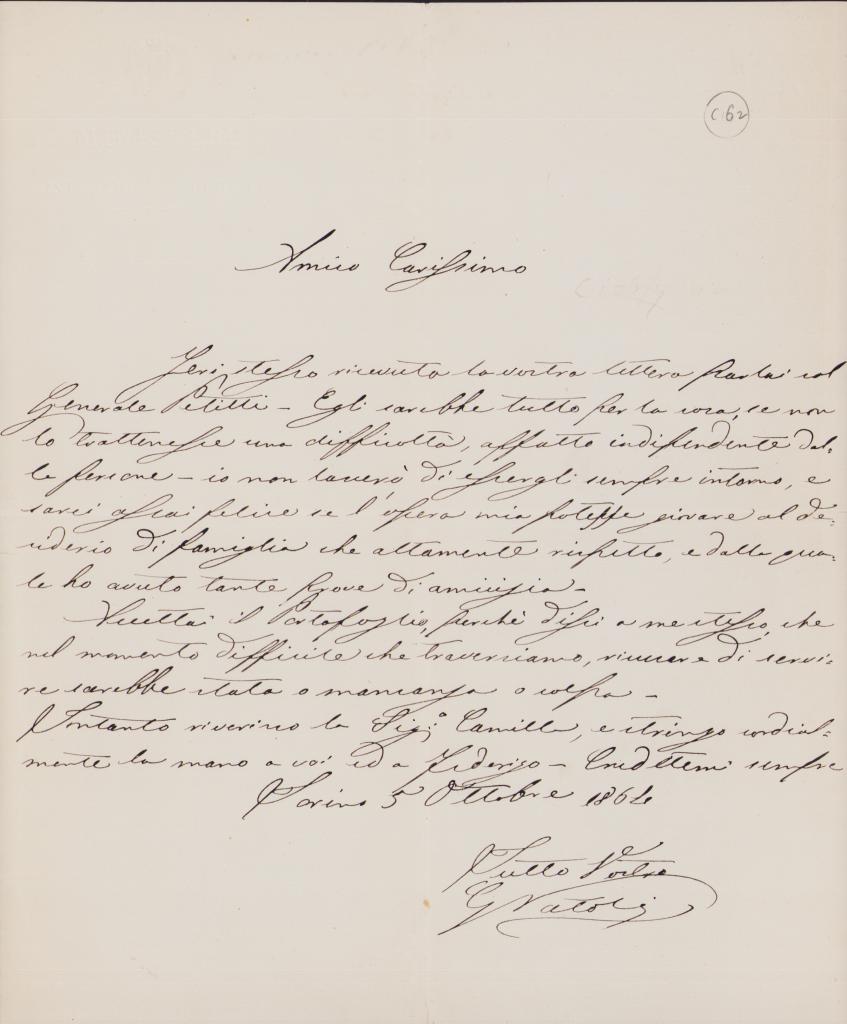 C162
Amico Carissimo
Jeri stesso ricevuta la vostra lettera parlai col
Generale Petitti – Egli sarebbe tutto per la cosa, se non
lo trattenesse una difficoltà, affatto indipendente dal-
le persone – io non lascerò di essergli sempre intorno, e
sarei assai felice se l'opera mia potesse giovare al de-
siderio di famiglia che altamente rispetto, e dalla qua-
le ho avuto tante prove di amicizia –
Accettai il Portafoglio, perchè dissi a me stesso, che
nel momento difficile che traversiamo, ricusare di servi-
re sarebbe stata o mancanza o colpa –
Intanto riverisco la Sig.ª Camilla, e stringo cordial-
mente la mano a voi ed a Federigo – Credetemi sempre
Torino 5 Ottobre 1864
Tutto Vostro
G Natoli